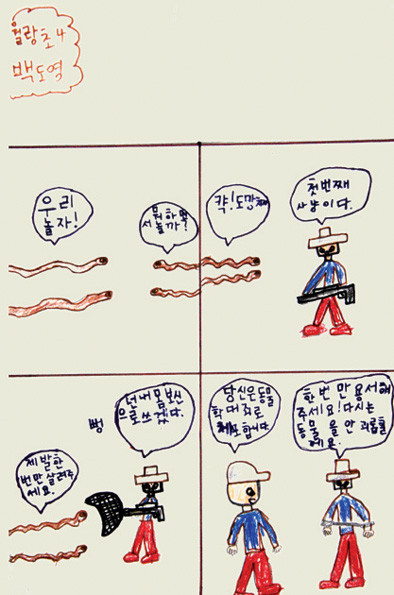 월랑초4
백도영
우리
놀자!
뭐하면
서놀까?
캭!도망쳐
첫번째
사냥이다.
제발한
번만살려주
세요.
뻥
넌내몸보신
으로쓰겠다.
당신은동물
학대죄로
체포합니다.
한번만용서해
주세요!다시는
동물을안괴롭힐
께요.